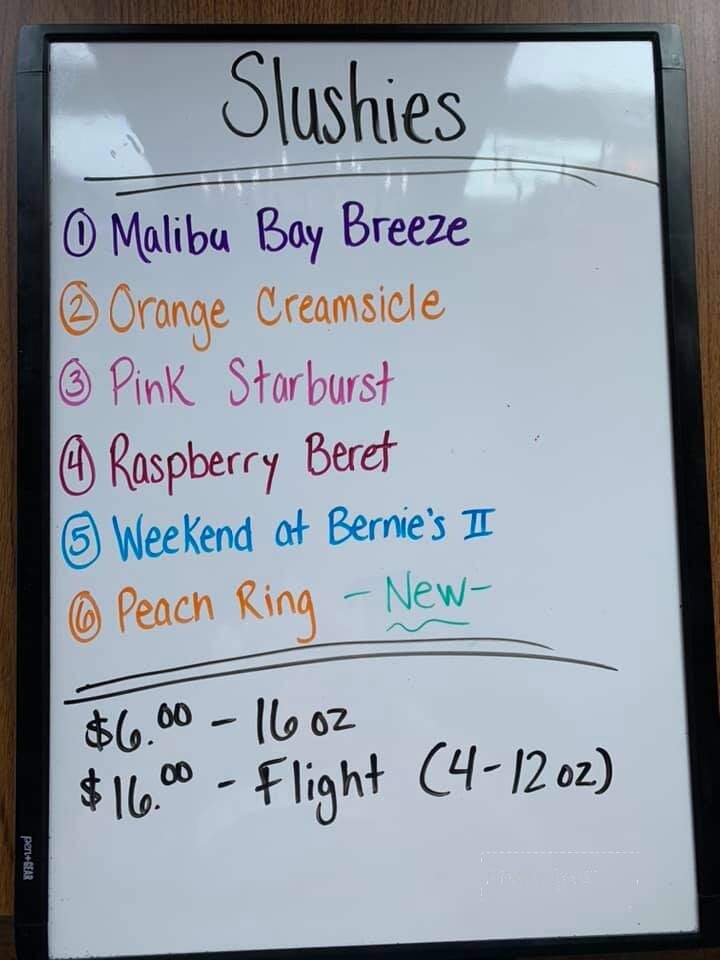 Slushies
① Malibu Bay Breeze
② Orange Creamsicle
③ Pink Starburst
④ Raspberry Beret
⑤ Weekend at Bernie's II
⑥ Peach Ring - New-
$6.00 - 16 oz
$16.00 - Flight (4-12 oz)
pen+GEAR